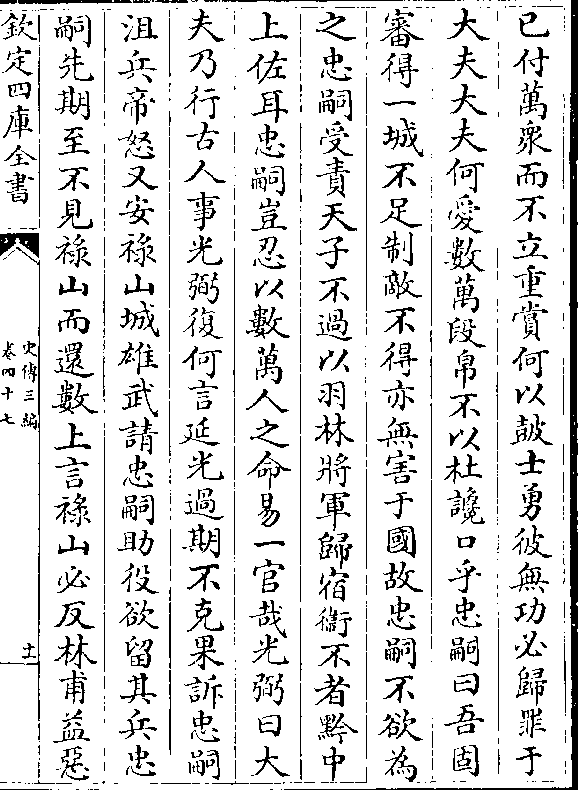 已付萬衆而不立重賞何以皷士勇彼無功必歸罪于
大夫大夫何愛數萬段帛不以杜讒口乎忠嗣曰吾固
審得一城不足制敵不得亦無害于國故忠嗣不欲為
之忠嗣受責天子不過以羽林將軍歸宿衛不者黔中
上佐耳忠嗣豈忍以數萬人之命易一官哉光弼曰大
夫乃行古人事光弼復何言延光過期不克果訴忠嗣
沮兵帝怒又安祿山城雄武請忠嗣助役欲留其兵忠
嗣先期至不見祿山而還數上言祿山必反林甫益惡
欽定四庫全書
史傳三編
卷四十七
十一